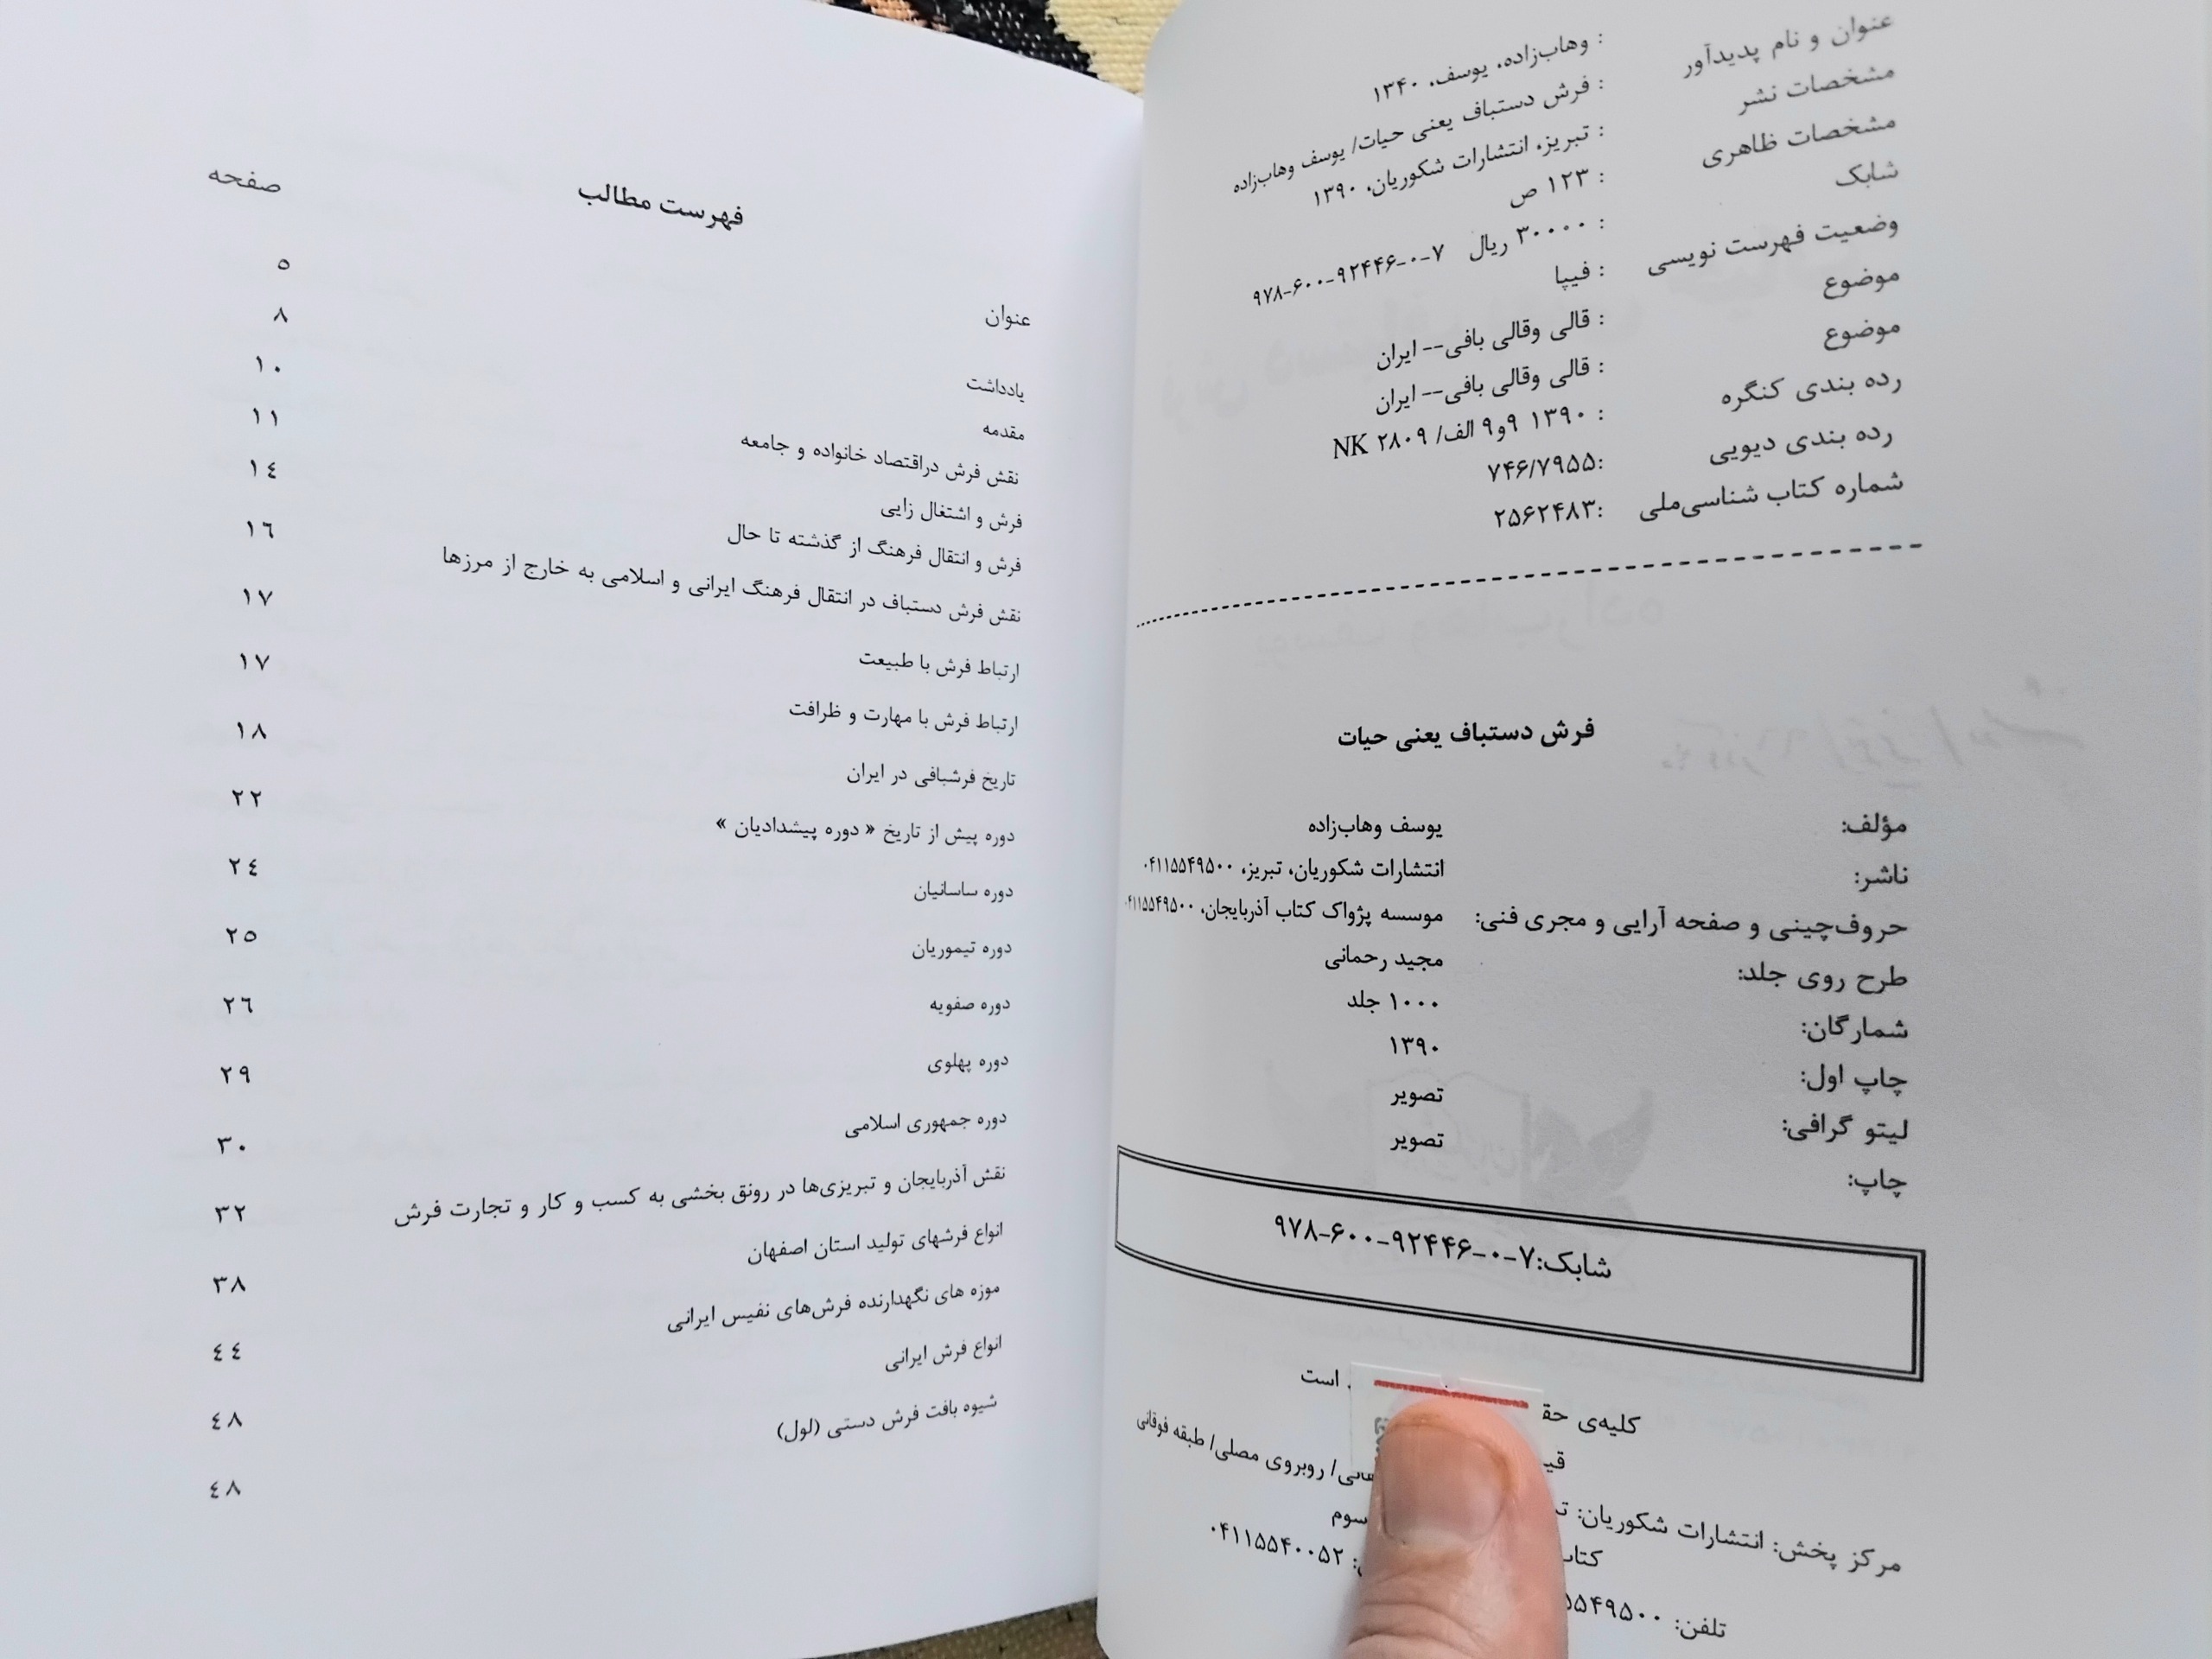 عنوان و نام پدیدآور : وهاب‌زاده، یوسف، ۱۳۴۰
مشخصات نشر : فرش دستباف یعنی حیات/ یوسف وهاب‌زاده
مشخصات ظاهری : تبریز، انتشارات شکوریان، ۱۳۹۰
شابک : ۱۲۳ ص
وضعیت فهرست نویسی : ۳۰۰۰۰ ریال ۷-۰-۹۲۴۴۶-۶۰۰-۹۷۸
موضوع : فیپا
موضوع : قالی وقالی بافی-- ایران
رده بندی کنگره : قالی وقالی بافی-- ایران
رده بندی دیویی : ۱۳۹۰ ۹و۹ الف/ ۲۸۰۹ NK
شماره کتاب شناسی‌ملی :۷۴۶/۷۹۵۵
:۲۵۶۲۴۸۳
فرش دستباف یعنی حیات
مؤلف: یوسف وهاب‌زاده
ناشر: انتشارات شکوریان، تبریز، ۰۴۱۱۵۵۴۹۵۰۰
حروف‌چینی و صفحه آرایی و مجری فنی: موسسه پژواک کتاب آذربایجان، ۰۴۱۱۵۵۴۹۵۰۰
طرح روی جلد: مجید رحمانی
شمارگان: ۱۰۰۰ جلد
چاپ اول: ۱۳۹۰
لیتو گرافی: تصویر
چاپ: تصویر
شابک:۷-۰-۹۲۴۴۶-۶۰۰-۹۷۸
کلیه‌ی است
مرکز پخش: انتشارات شکوریان: روبروی مصلی/ طبقه فوقانی
سوم
۰۴۱۱۵۵۴۰۰۵۲
تلفن:
فهرست مطالب صفحه
عنوان ۵
یادداشت ۸
مقدمه ۱۰
نقش فرش دراقتصاد خانواده و جامعه ۱۱
فرش و اشتغال زایی ۱٤
فرش و انتقال فرهنگ از گذشته تا حال ۱٦
نقش فرش دستباف در انتقال فرهنگ ایرانی و اسلامی به خارج از مرزها ۱۷
ارتباط فرش با طبیعت ۱۷
ارتباط فرش با مهارت و ظرافت ۱۸
تاریخ فرشبافی در ایران ۲۲
دوره پیش از تاریخ « دوره پیشدادیان » ۲٤
دوره ساسانیان ۲۵
دوره تیموریان ۲٦
دوره صفویه ۲۹
دوره پهلوی ۳۰
دوره جمهوری اسلامی ۳۲
نقش آذربایجان و تبریزی‌ها در رونق بخشی به کسب و کار و تجارت فرش ۳۸
انواع فرشهای تولید استان اصفهان ٤٤
موزه های نگهدارنده فرش‌های نفیس ایرانی ٤۸
انواع فرش ایرانی ٤۸
شیوه بافت فرش دستی (لول)